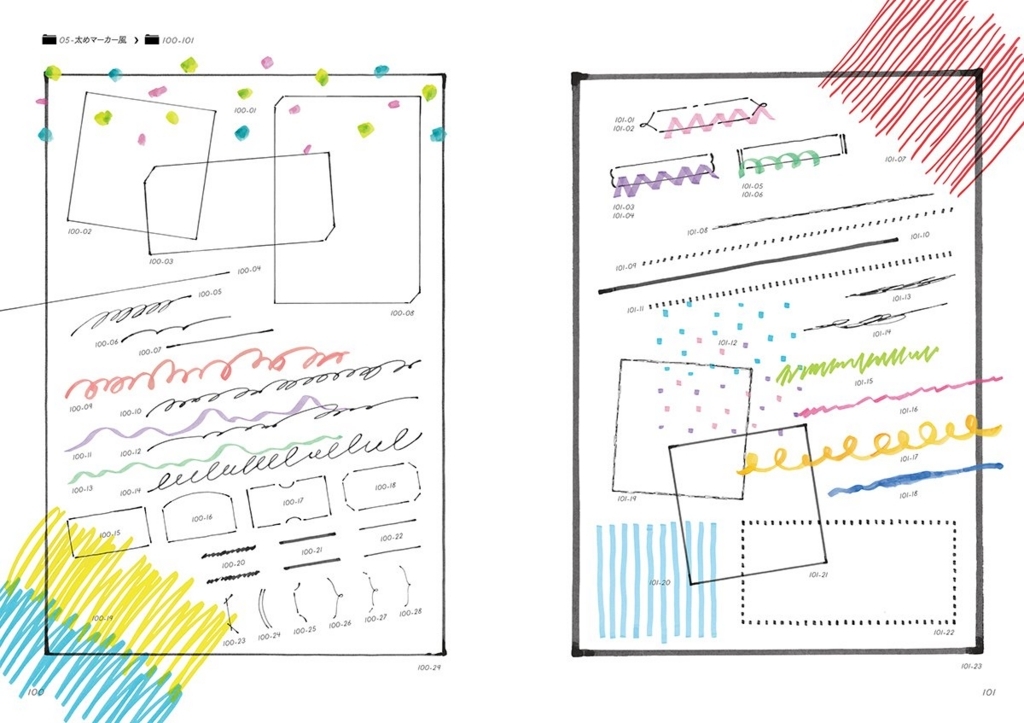 05-太めマーカー風 > 100-101
100-01
100-02
100-03
100-04
100-05
100-06
100-07
100-08
100-09
100-10
100-11
100-12
100-13
100-14
100-15
100-16
100-17
100-18
100-19
100-20
100-21
100-22
100-23
100-24
100-25
100-26
100-27
100-28
100-29
100
101-01
101-02
101-03
101-04
101-05
101-06
101-07
101-08
101-09
101-10
101-11
101-12
101-13
101-14
101-15
101-16
101-17
101-18
101-19
101-20
101-21
101-22
101-23
101